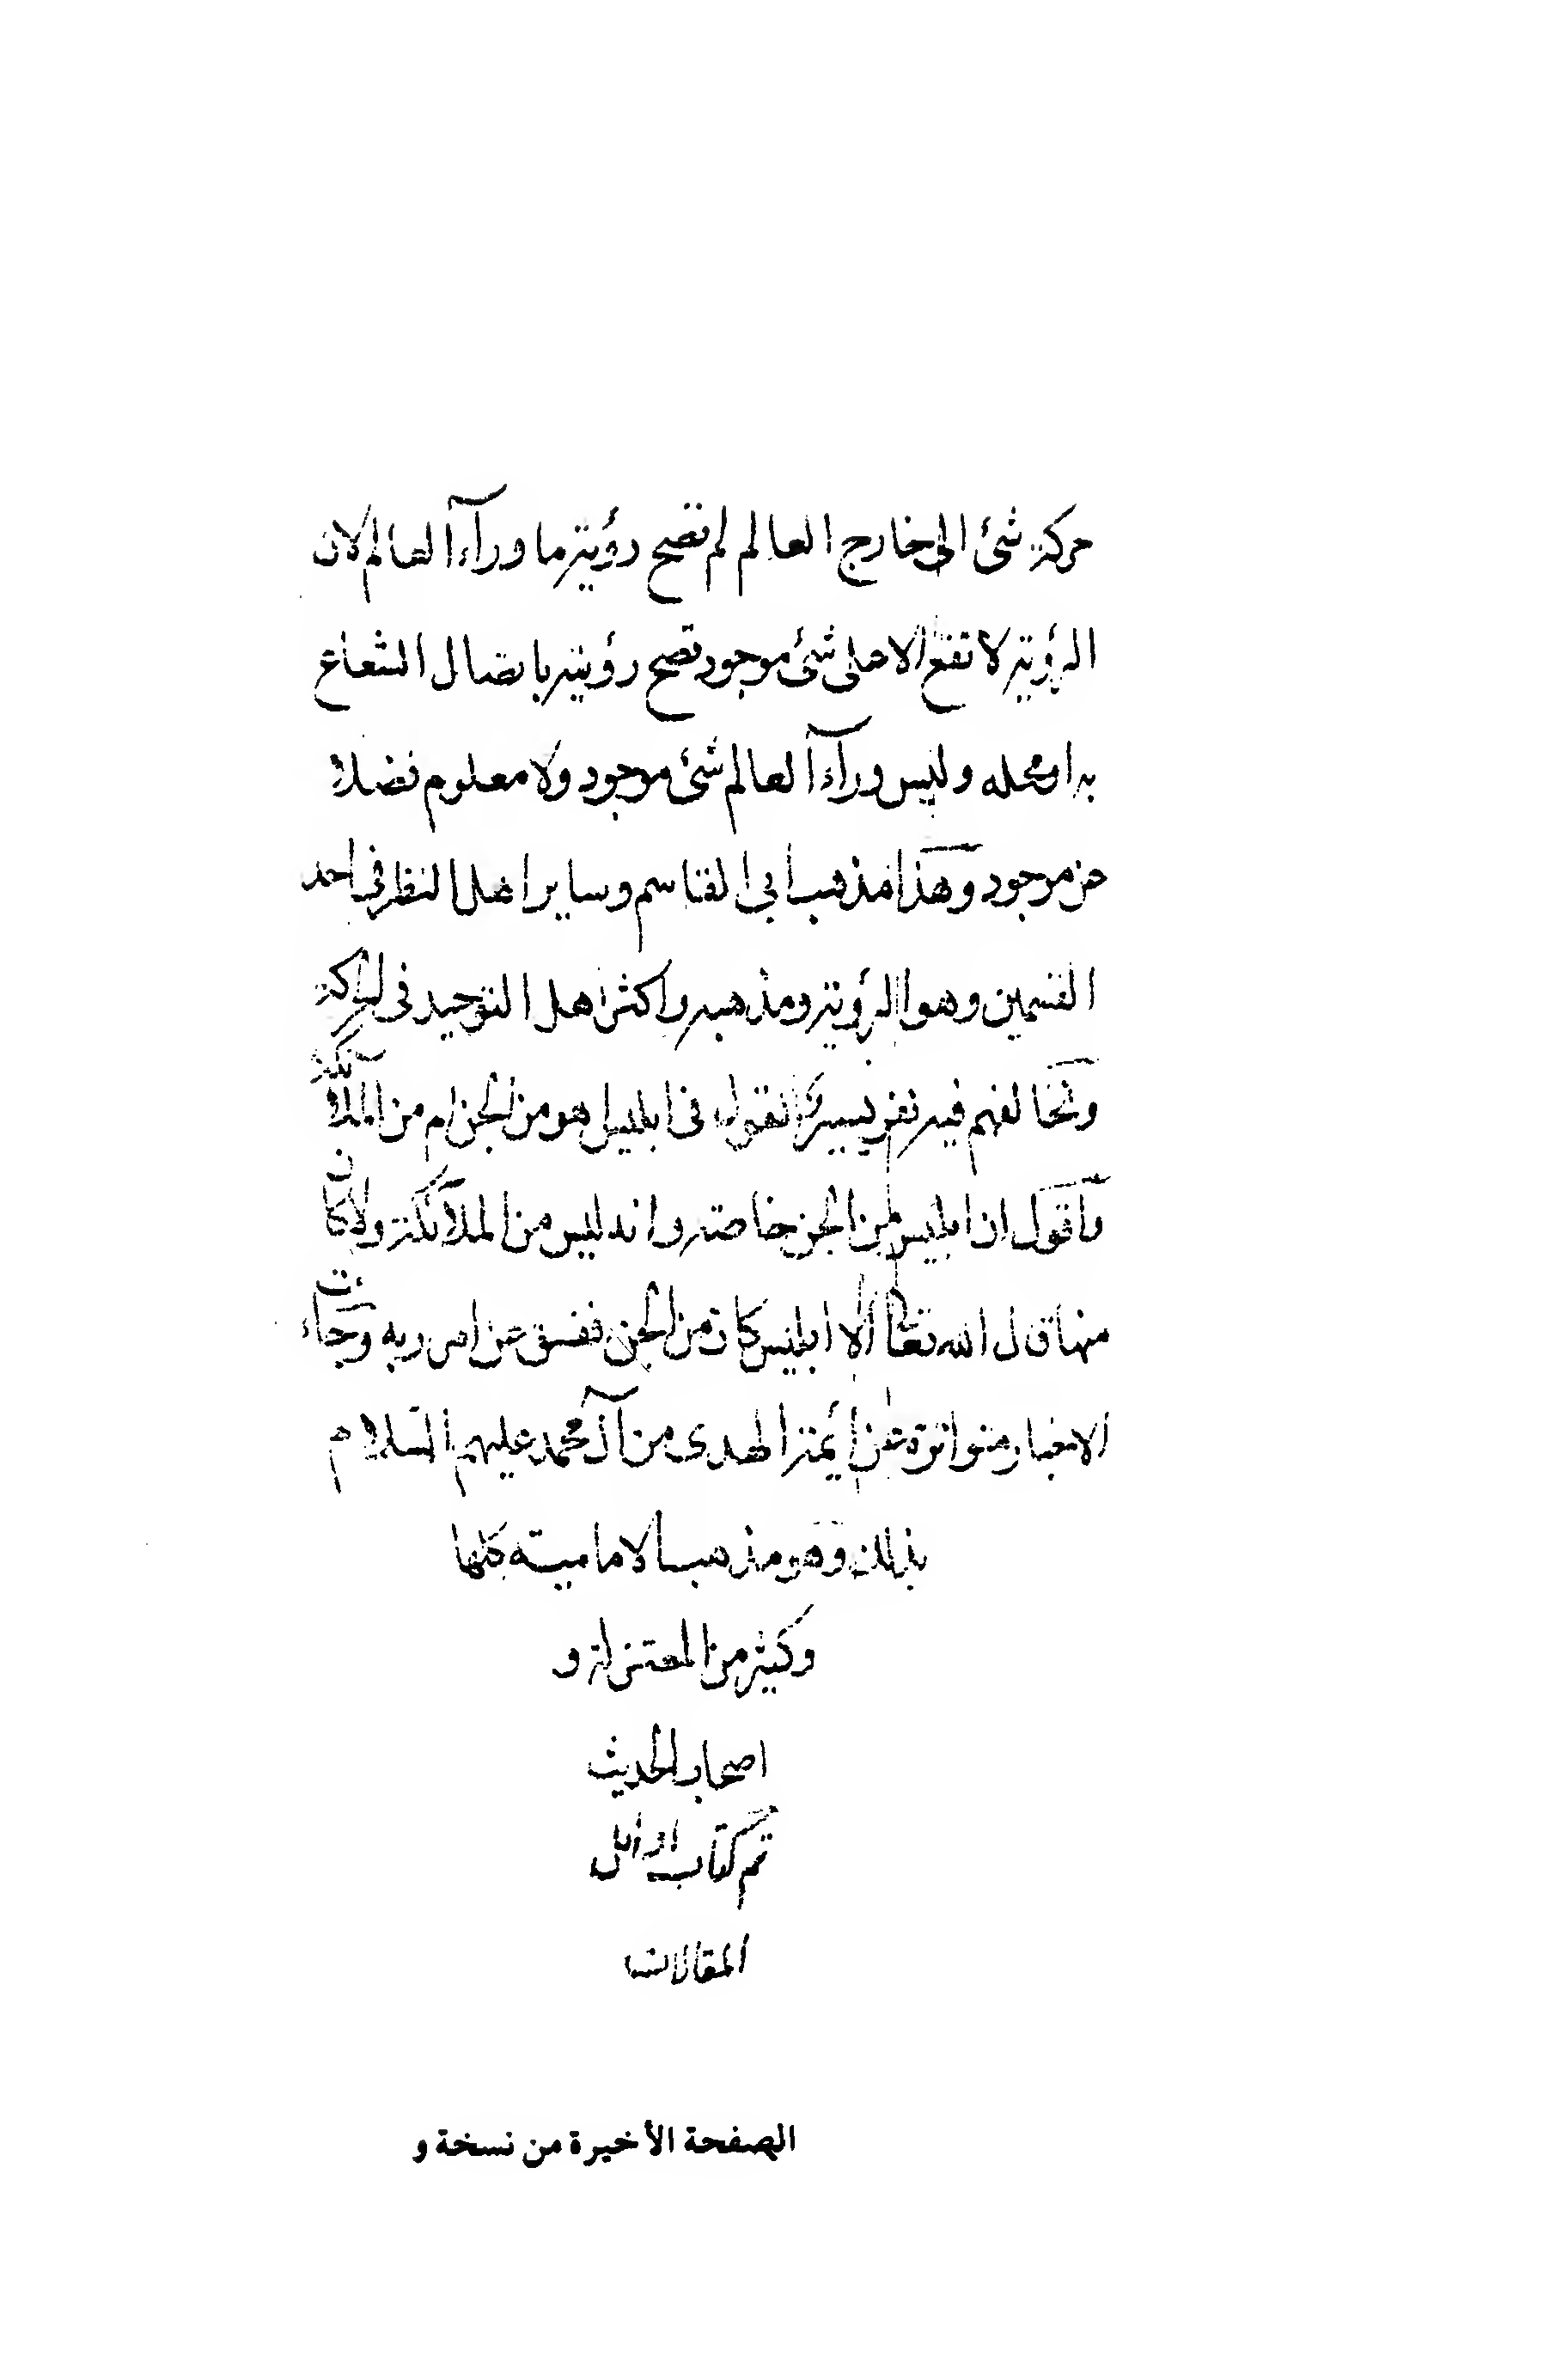 حركة شئ الى خارج العالم لم تصح رؤية ما ورآء العالم لان
الرؤية لا تقع الا على شئ موجود تصح رؤيته باتصال الشعاع
به او محله وليس ورآء العالم شئ موجود ولا معلوم فضلا
عن موجود وهذا مذهب ابى القاسم وساير اهل النظر فى احد
القسمين وهو الرؤية ومذهبه واكثر اهل التوحيد فى الحركة
ويخالفهم فيه نفر يسير القول فى ابليس هو من الجن ام من الملآئكة
وآقول ان ابليس من الجن خاصة وانه ليس من الملآئكة ولا كان
منها قال الله تعالى الا ابليس كان من الجن ففسق عن امر ربه وجآءت
الاخبار متواترة عن أئمة الهدى من آل محمد عليهم السلام
بذلك وهو مذهب الامامية كلها
وكثير من المعتزلة و
اصحاب الحديث
تم كتاب اوائل
المقالات
الصفحة الأخيرة من نسخة و